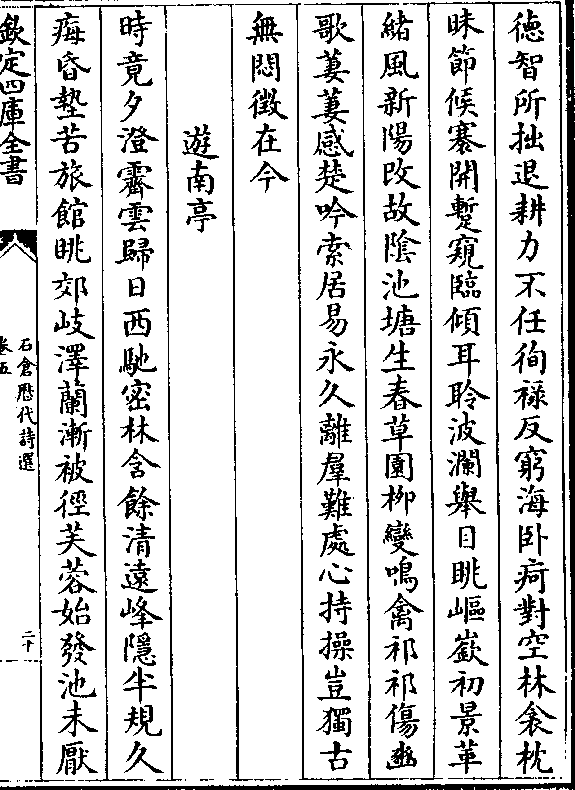 德智所拙退耕力不任徇祿反窮海卧痾對空林衾枕
昧節候褰開暫窺臨傾耳聆波瀾舉目眺嶇嶔初景革
緒風新陽改故陰池塘生春草園柳變鳴禽祁祁傷豳
歌萋萋感楚吟索居易永久離羣難處心持操豈獨古
無悶徵在今
遊南亭
時竟夕澄霽雲歸日西馳密林含餘清遠峰隱半規久
痗昏墊苦旅館眺郊岐澤蘭漸被徑芙蓉始發池未厭
欽定四庫全書
石倉歷代詩選
卷五
二十